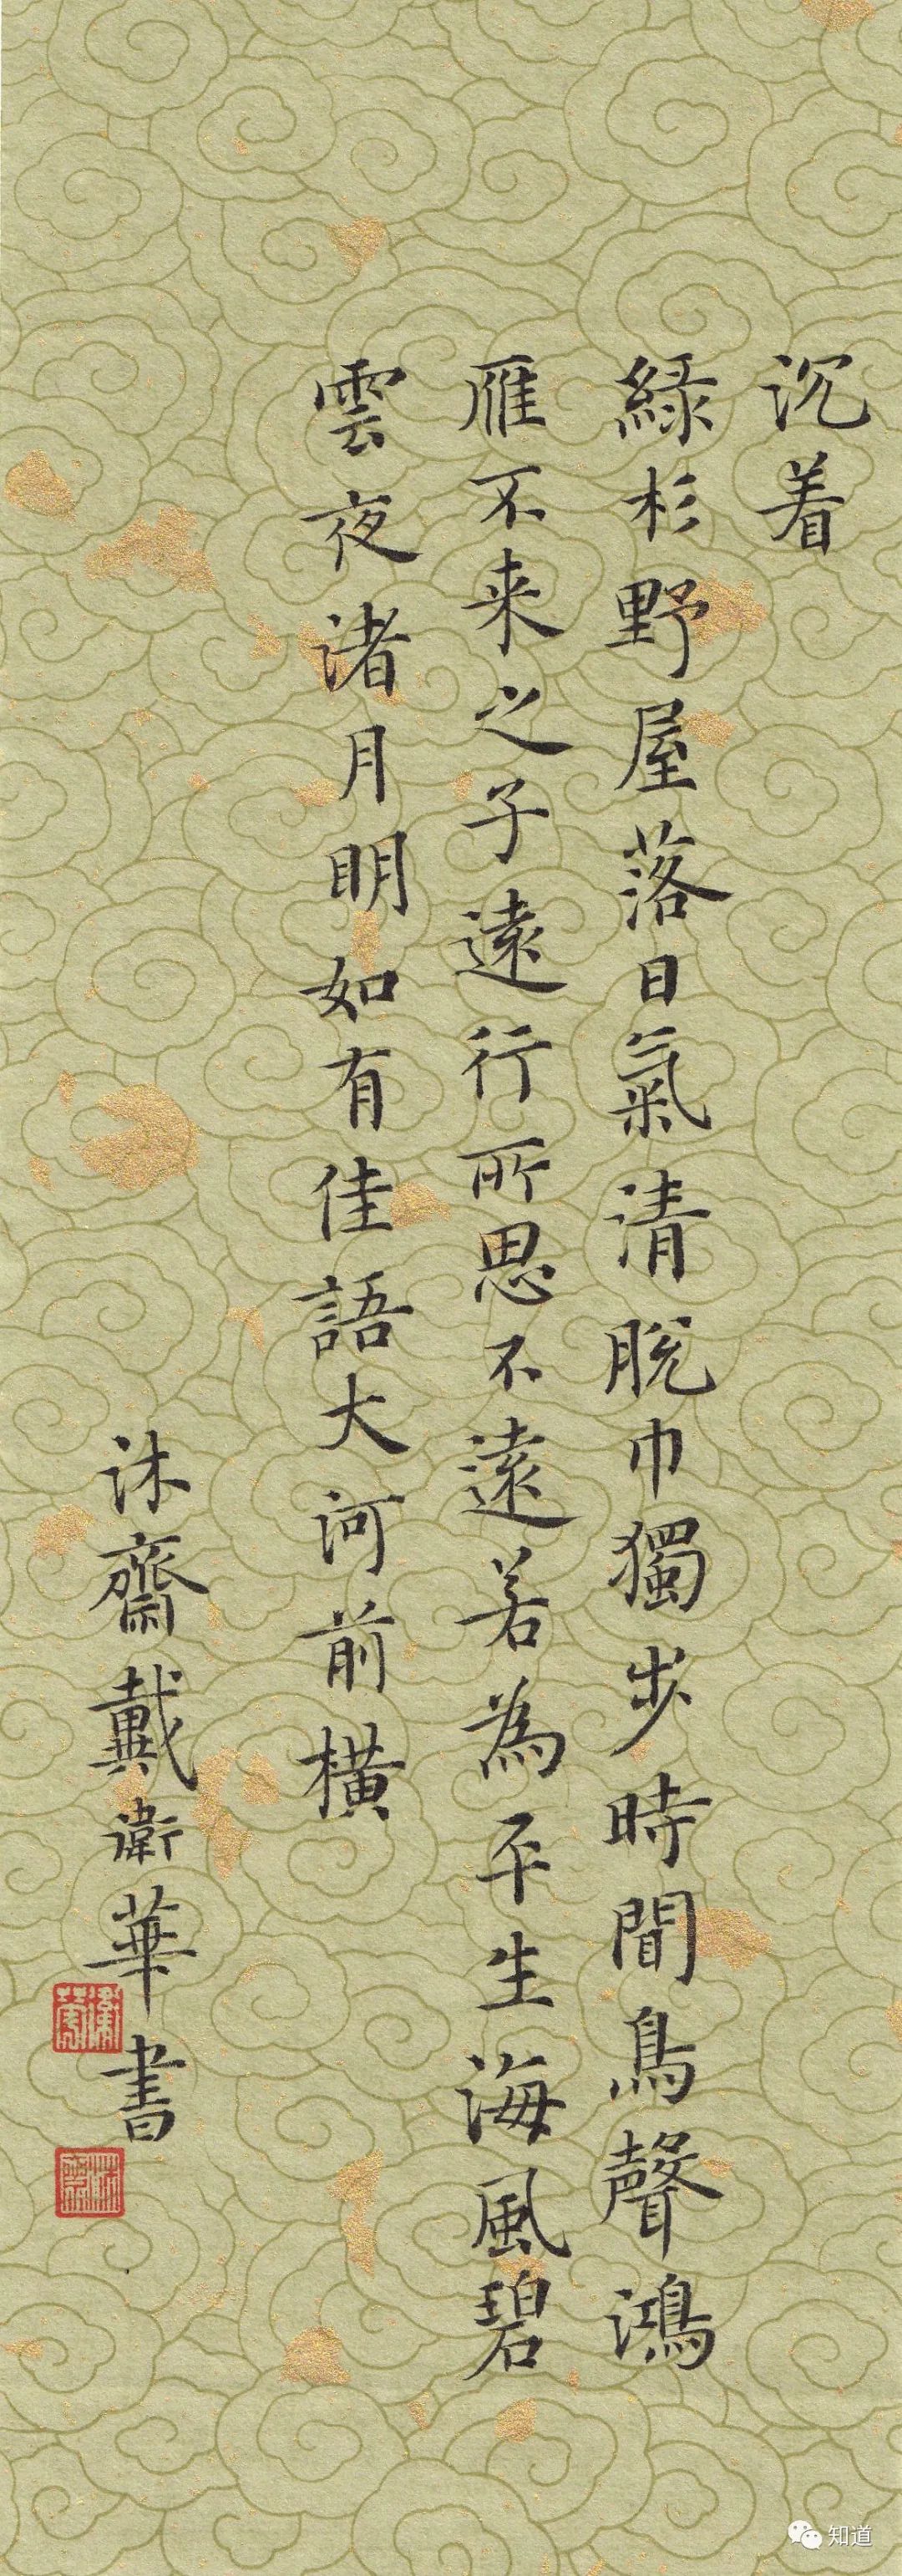 沉着
綠杉野屋落日氣清脫巾獨步時聞鳥聲鴻
雁不来之子遠行所思不遠若為平生海風碧
雲夜渚月明如有佳語大河前橫
沐齋戴衛華書
知道